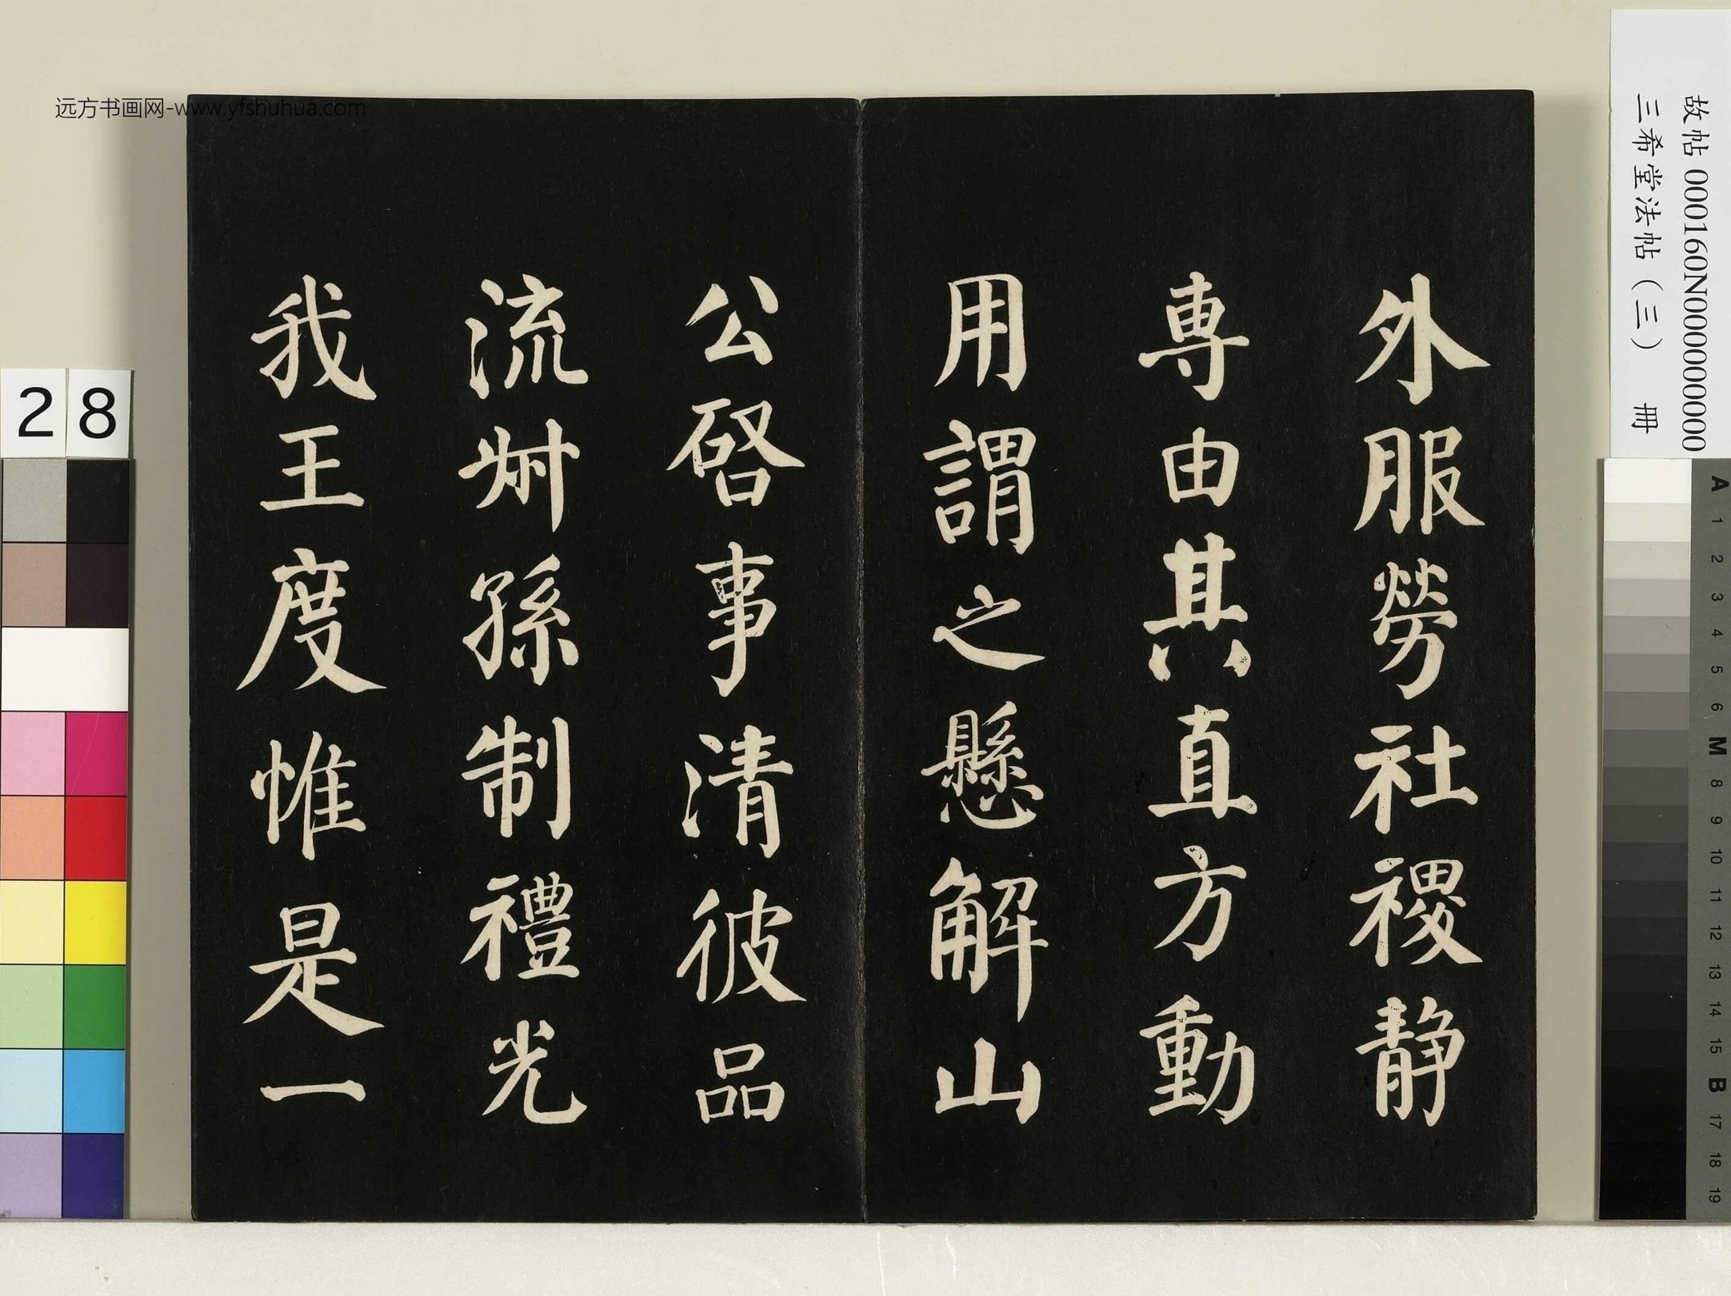 外服勞社稷静
専由其直方動
用謂之懸解山
公啓事清彼品
流舛孫制禮光
我王度惟是一
远方书画网-www.yfshuhua.com
故帖 000160N000000000
三希堂法帖（三） 冊
28
A
1
2
3
4
5
6
M
8
9
10
11
12
13
14
15
B
17
18
19